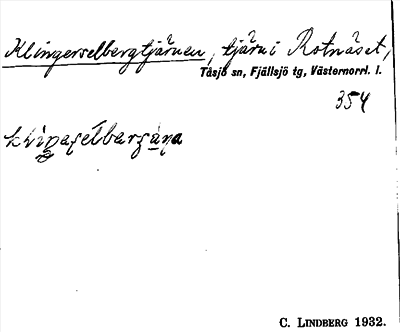 Klingerselbergtjärnen, tjärn i Rotnäset,
Tåsjö sn, Fjällsjö tg, Västernorrl. l.
354
C. LINDBERG 1932.